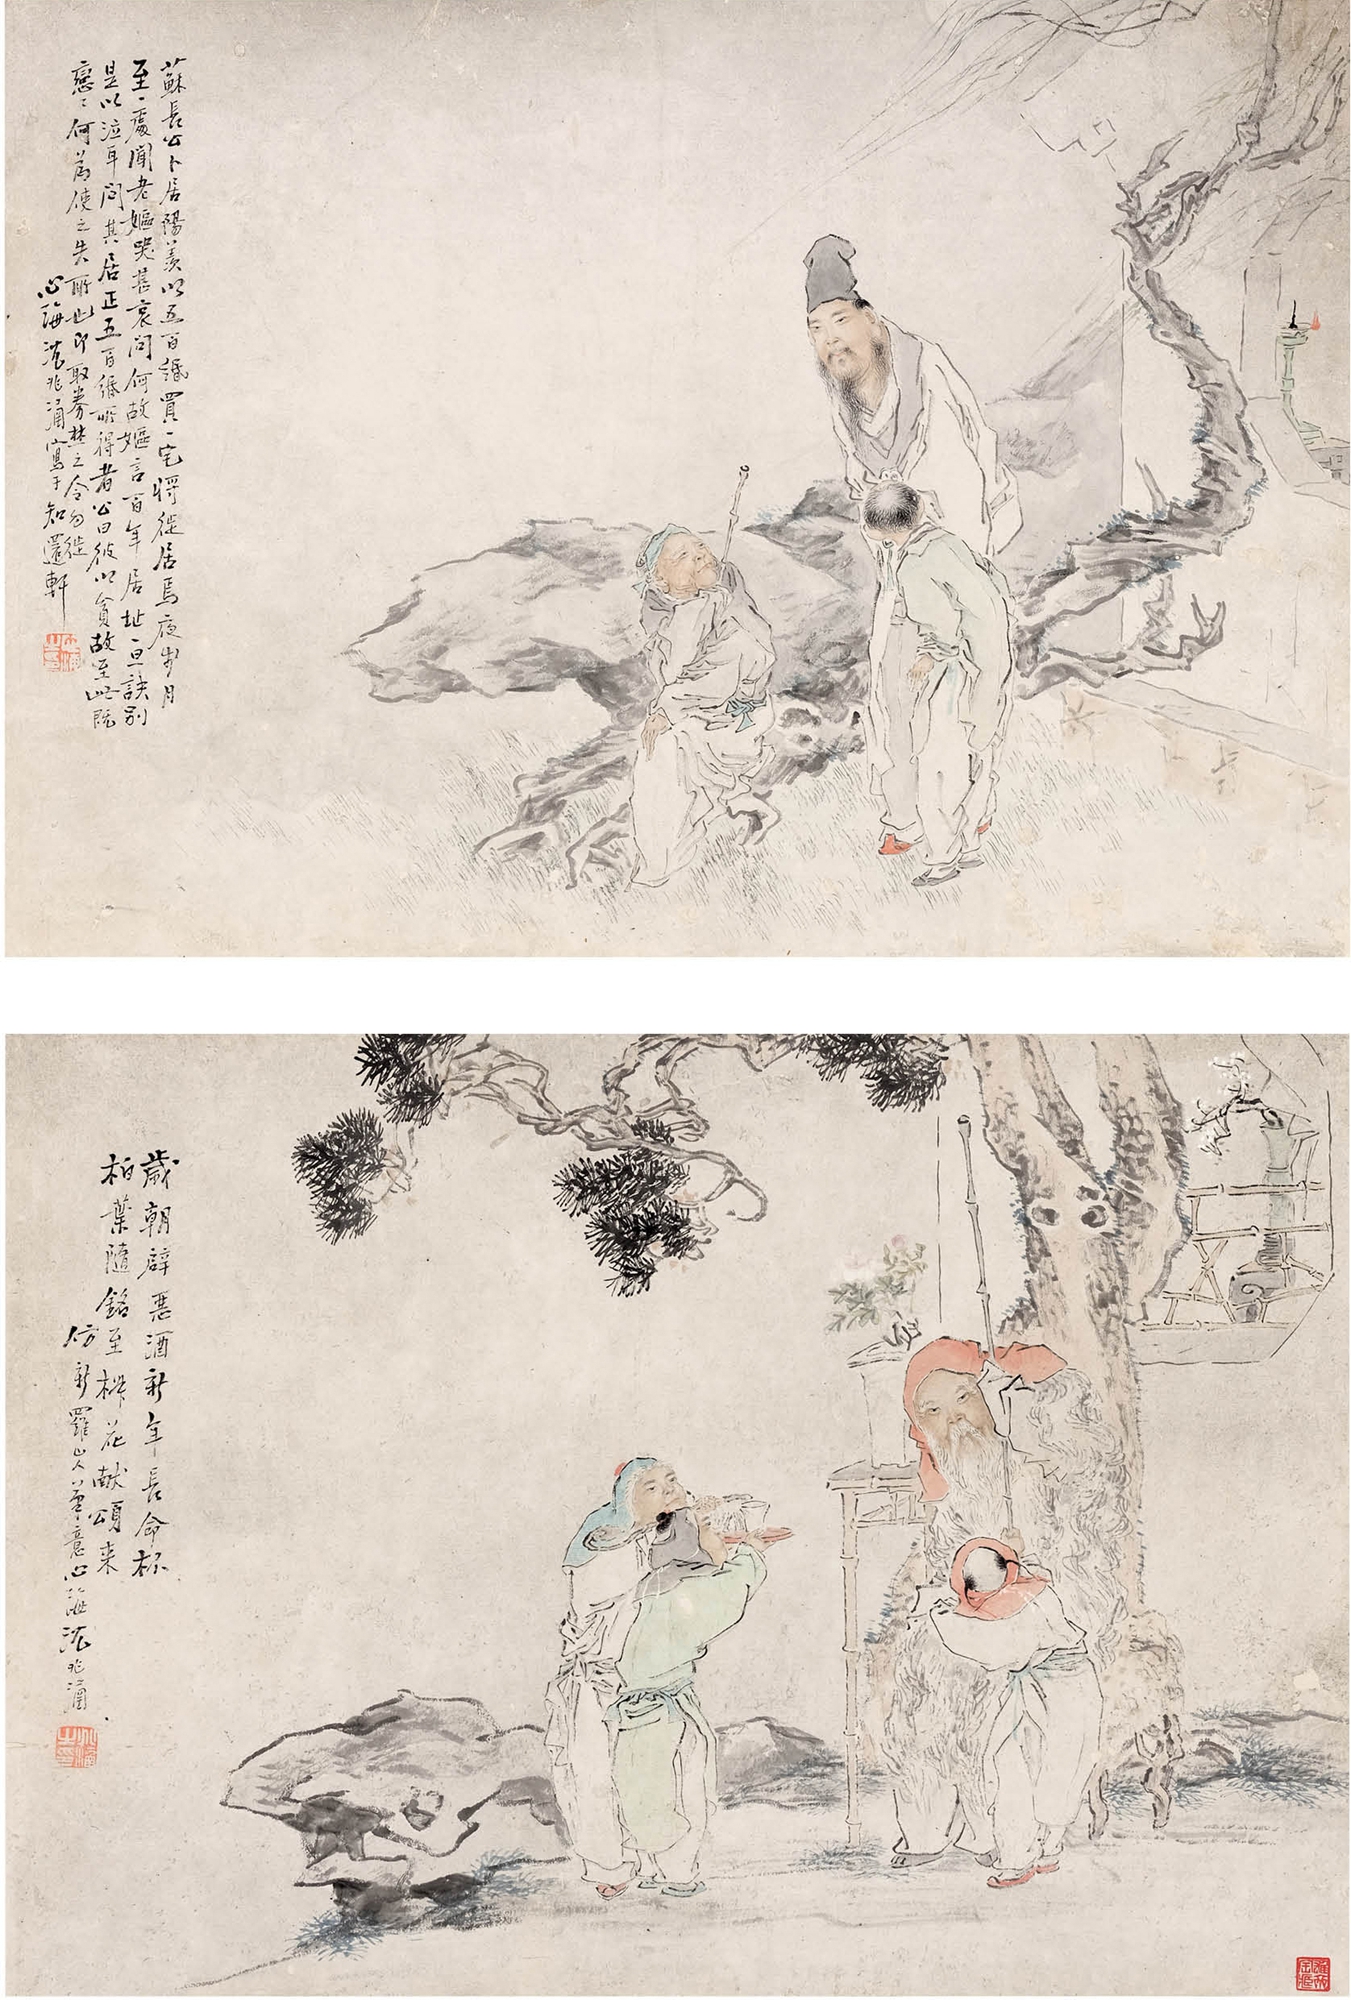 蘇長公卜居陽羨以五百緡買一宅將徙居焉夜步月
至一處聞老嫗哭甚哀問何故嫗言百年居址一旦訣別
是以泣耳問其居正五百緡所得者公曰彼以貧故至此既
戀戀何為使之失所也即取券焚之令勿徙
心海沈兆涵寫于知還軒
歲朝辟惡酒新年長命杯
柏葉隨銘至椒花献頌来
仿新羅山人筆意心海沈兆涵